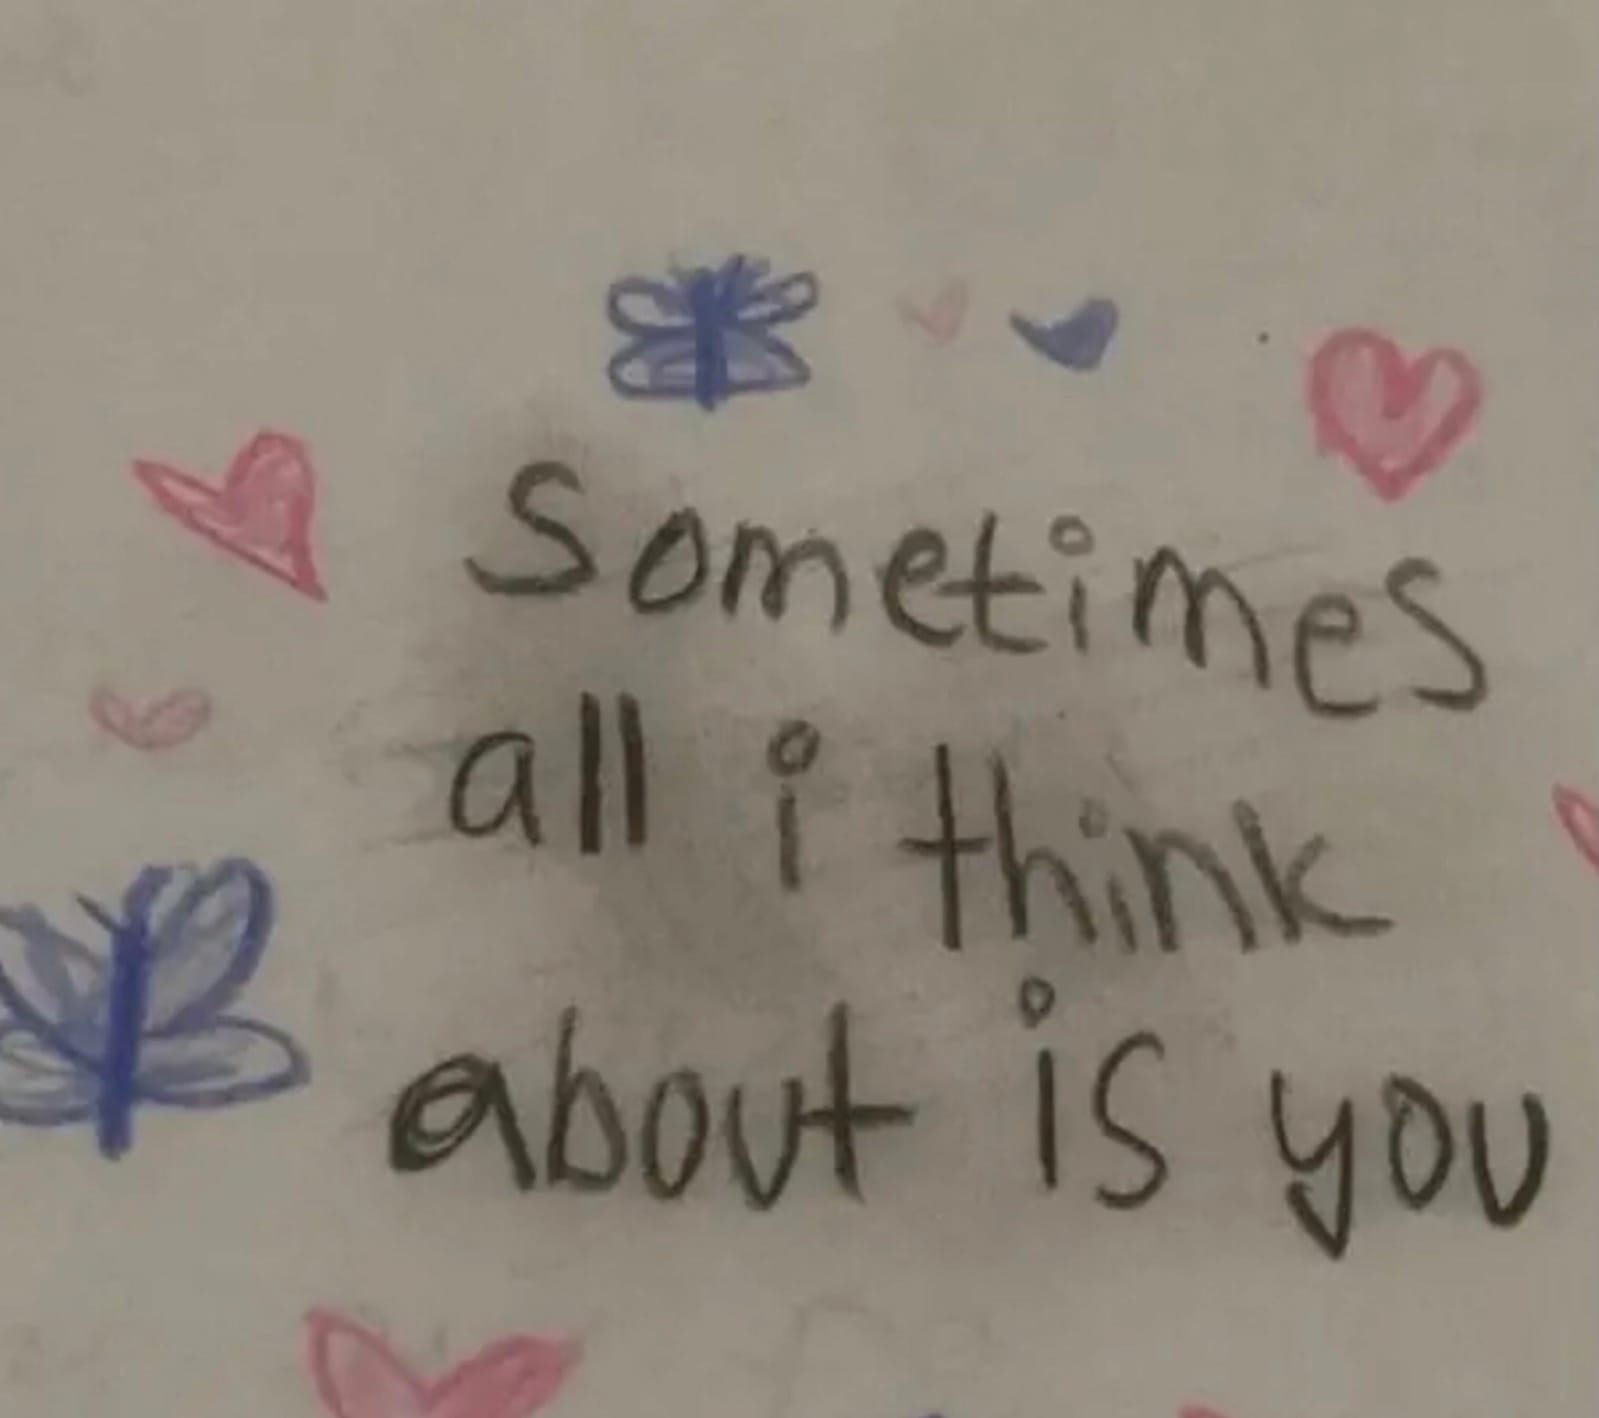 Sometimes
all i think
about is you